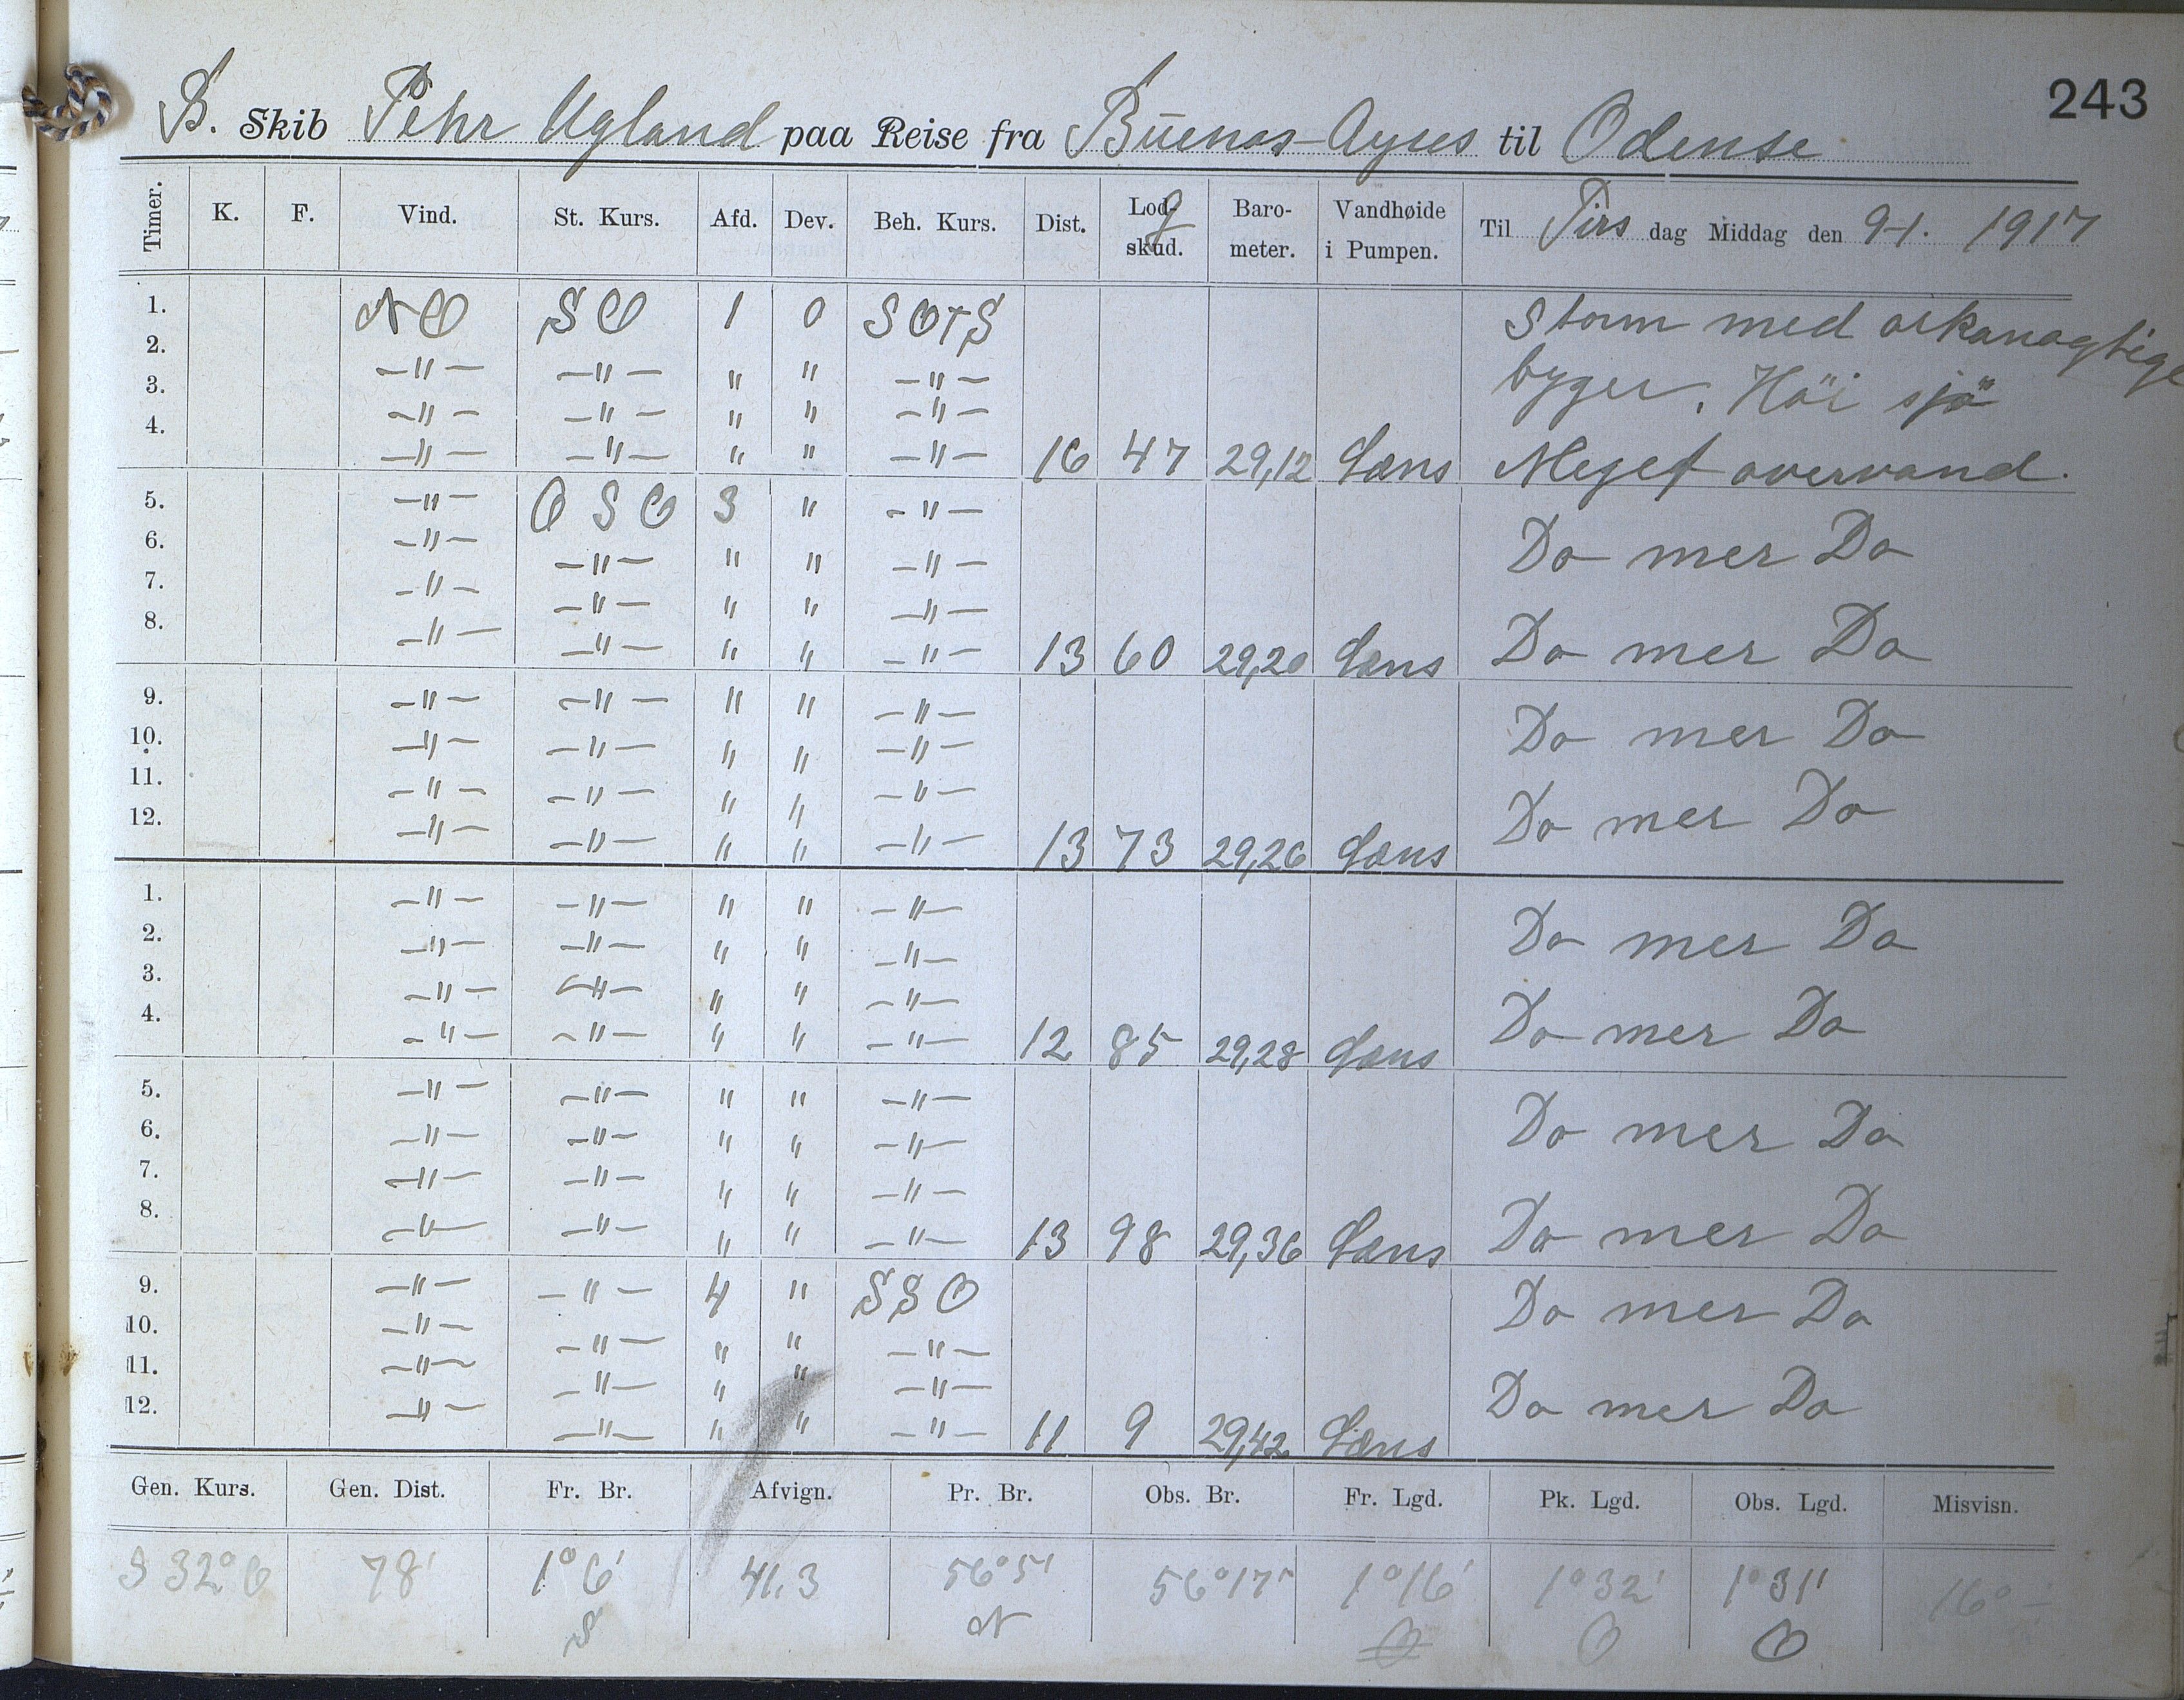 243
S. Skib Pehr Ugland paa Reise fra Buenos-Ayres til Odense
Timer. K. F. Vind. St. Kurs. Afd. Dev. Beh. Kurs. Dist. Lodg-skud. Baro-meter. Vandhøide i Pumpen. Til Tirs dag Middag den 9-1. 1917
1. NO SO 1 0 SOTS Storm med orkanagtige
2. -"- -"- " " -"- byger. Höi sjö
3. -"- -"- " " -"-
4. -"- -"- " " -"- 16 47 29,12 Læns Meget overvand.
5. -"- OSO 3 " -"- Do mer Do
6. -"- -"- " " -"-
7. -"- -"- " " -"-
8. -"- -"- " " -"- 13 60 29,20 Læns Do mer Do
9. -"- -"- " " -"- Do mer Do
10. -"- -"- " " -"-
11. -"- -"- " " -"- Do mer Do
12. -"- -"- " " -"- 13 73 29,26 Læns
1. -"- -"- " " -"- Do mer Do
2. -"- -"- " " -"-
3. -"- -"- " " -"-
4. -"- -"- " " -"- 12 85 29,28 Læns Do mer Do
5. -"- -"- " " -"- Do mer Do
6. -"- -"- " " -"-
7. -"- -"- " " -"-
8. -"- -"- " " -"- 13 98 29,36 Læns Do mer Do
9. -"- -"- 4 " SSO Do mer Do
10. -"- -"- " " -"-
11. -"- -"- " " -"- Do mer Do
12. -"- -"- " " -"- 11 9 29,42 Læns
Gen. Kurs. Gen. Dist. Fr. Br. Afvign. Pr. Br. Obs. Br. Fr. Lgd. Pk. Lgd. Obs. Lgd. Misvisn.
S 32° O 78' 1° 6' 41,3 56° 5' 56° 17' 1° 16' 1° 32' 1° 31' 16° -
S N O O O